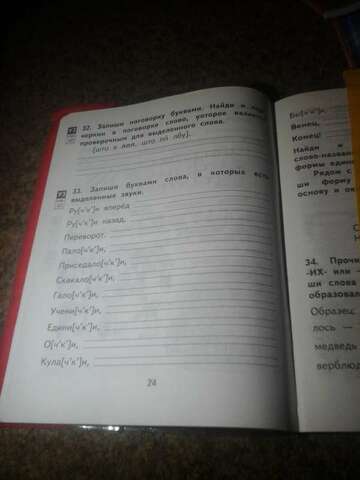 32. Запиши поговорку буквами. Найди и
черкни в поговорке слово, которое
проверочным для выделенного слова.
33. Запиши буквами слова, в которых есть
выделенные звуки.
Ру[ч'к']и вперёд
Ру[ч'к']и назад,
Переворот.
Пало[ч'к']и,
Приседало[ч'к']и,
Скакало[ч'к']и,
Гало[ч'к']и,
Учени[ч'к']и,
Едини[ч'к']и,
О[ч'к']и,
Кула[ч'к']и,
24
Венец,
Конец!
Найди и
слово-назва
формы едини
Рядом с
ши форму
основу и ок
34. Прочи
-ИХ- или
ши слова
образовал
Образец:
лось —
медведь
верблюд